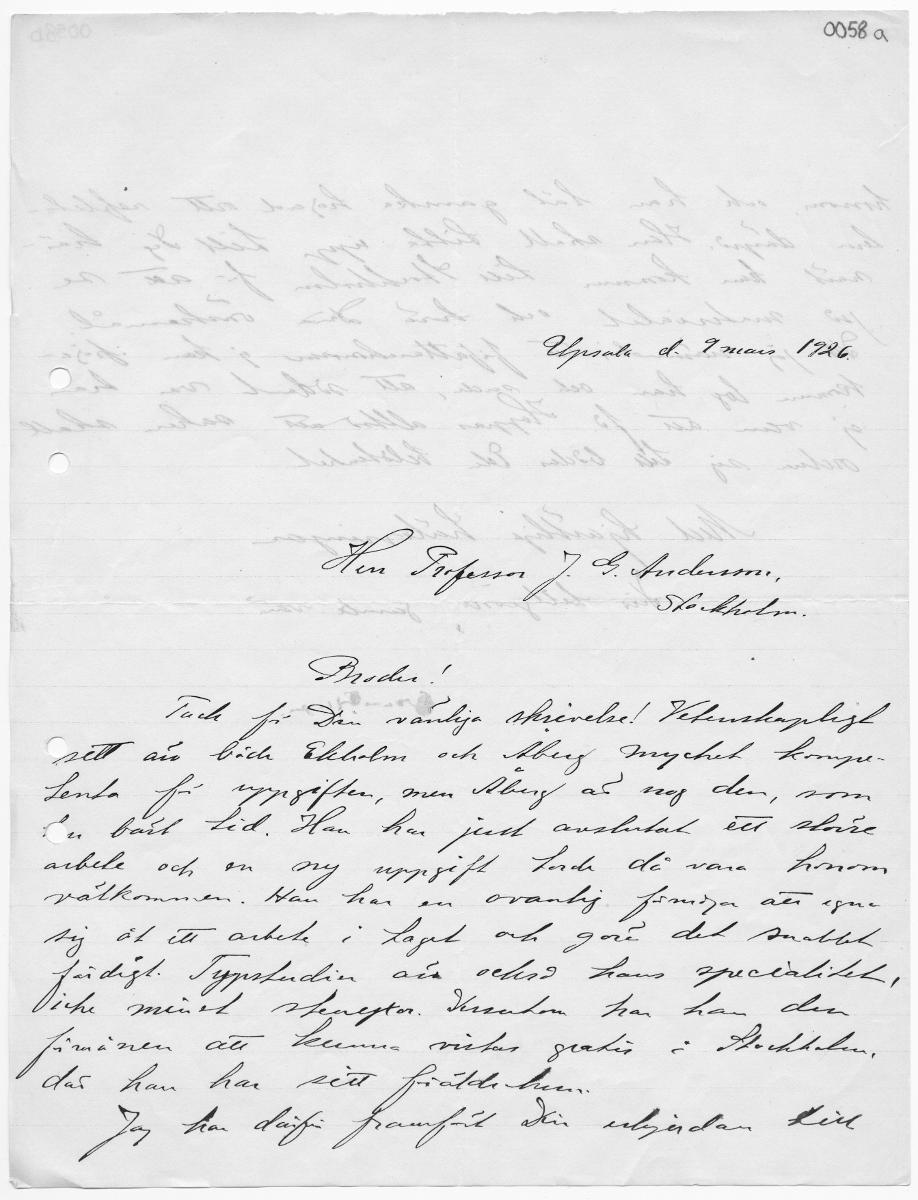 0058 a
Upsala d. 9 mars 1926.
Herr Professor J. G. Andersson,
Stockholm.
Broder!
Tack för Din vänliga skrivelse! Vetenskapligt
sett äro både Ekholm och Åberg mycket kompe-
tenta för uppgiften, men Åberg är nog den, som
har bäst tid. Han har just avslutat ett större
arbete och en ny uppgift torde då vara honom
välkommen. Han har en ovanlig förmåga att egna
sig åt ett arbete i taget och göra det snabbt
färdigt. Typstudier äro också hans specialitet,
icke minst stenyxor. Dessutom har han den
förmånen att kunna vistas gratis i Stockholm,
där han har sitt föräldrahem.
Jag har därför framfört Din erbjudan till